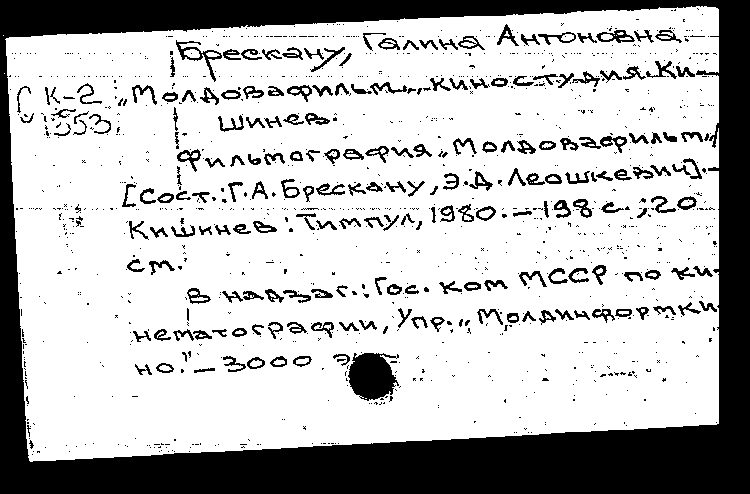 Брескану, Галина Антоновна.
К-2 "Молдовафильм", киностудия. Ки-
1353 шинев.
Фильмография "Молдовафильм"/
[Сост.: Г.А. Брескану, Э.Д. Леошкевич].-
Кишинев: Тимпул, 1980. - 198 с.; 20
см.
В надзаг.: Гос. ком МССР по ки-
нематографии, Упр. "Молдинформки-
но." - 3000 э